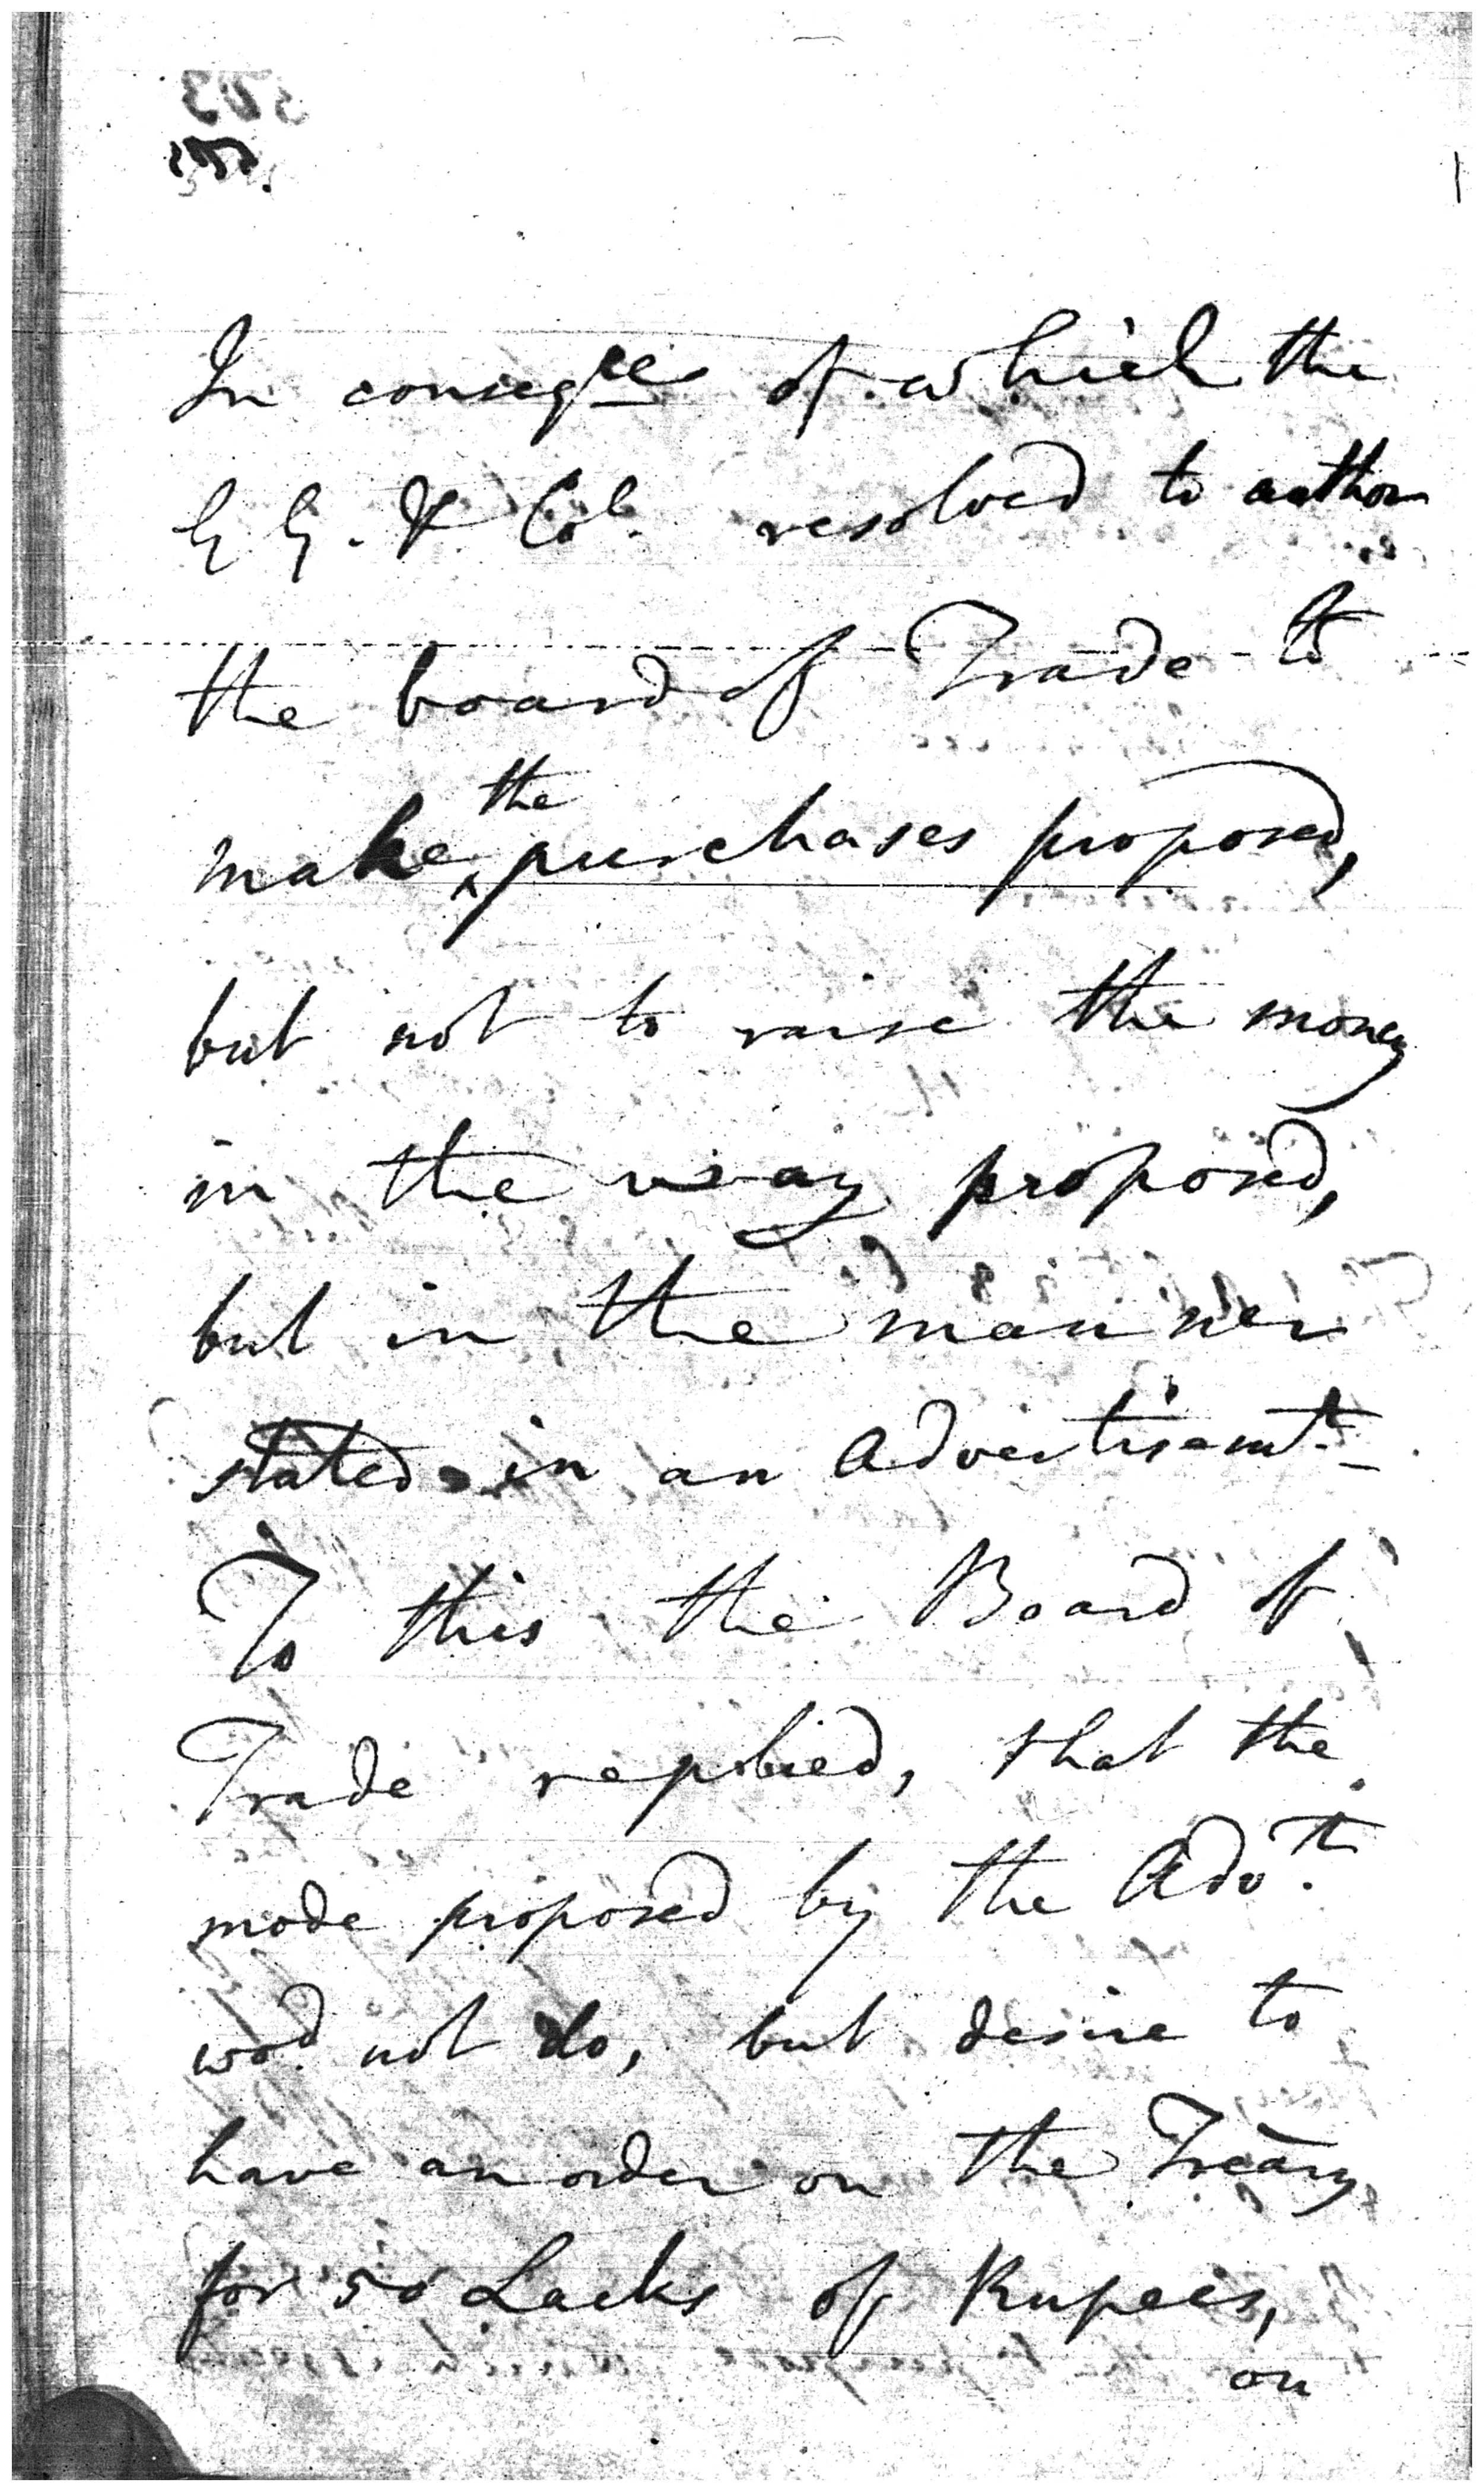 In conseqces of which the
G G. & Col. resolved to author
the board of Trade to
the
make purchases proposed,
but not to raise the money
in the way proposed,
but in the manner
stated in an Advertisemt.
To this the Board of
Trade replied, that the
mode proposed by the Advt.
wod. not do, but desire to
have an order on the Treàry
for 50 Lacks of Rupees,
on